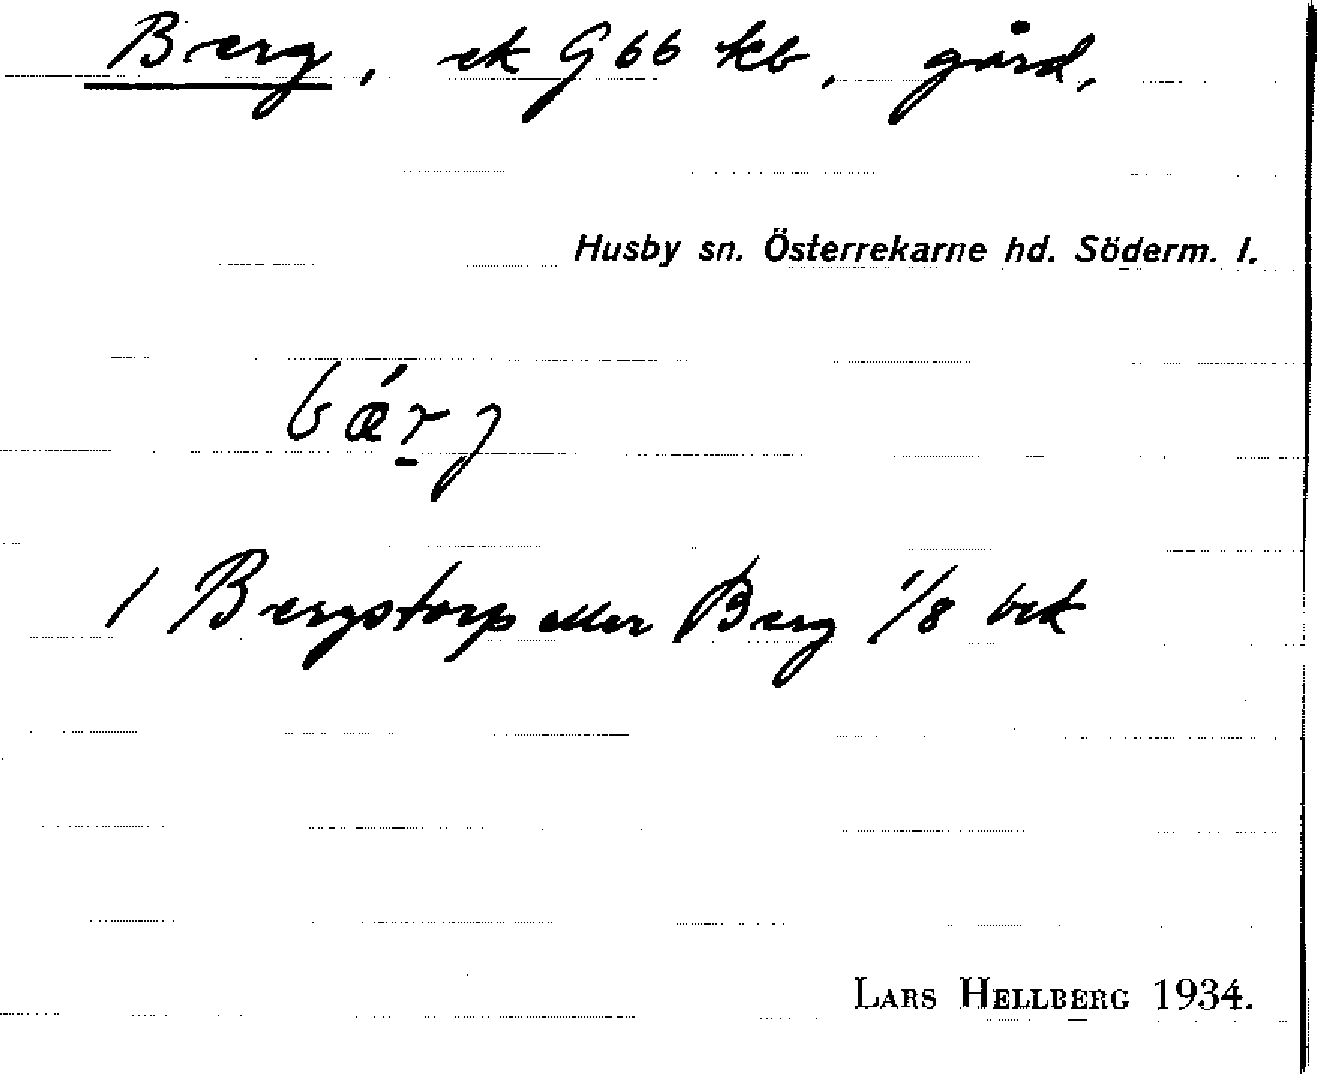 Berg, ek G 66 kb, gård,
Husby sn. Österrekarne hd. Söderm. l.
bǽr̲j
1 Bergstorp eller Berg 1/8 brk
LARS HELLBERG 1934.